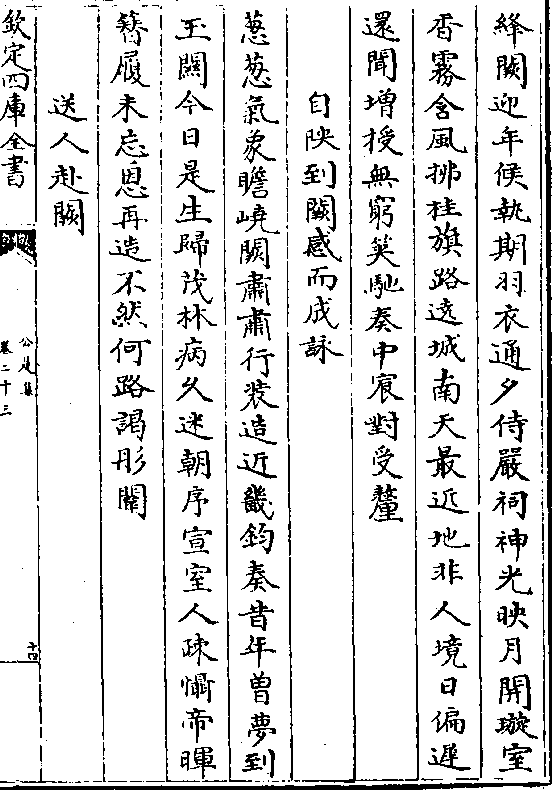 絳闕迎年候執期羽衣通夕侍嚴祠神光映月開璇室
香霧含風拂桂旗路逺城南天最近地非人境日偏遲
還聞增授無窮筭馳奏中宸對受釐
自陜到闕感而成詠
葱葱氣象瞻嶢闕肅肅行装造近畿鈞奏昔年曽夢到
玉關今日是生歸茂林病久迷朝序宣室人疎懾帝暉
簪履未忘恩再造不然何路謁彤闈
送人赴闕
欽定四庫全書
公是集
卷二十三
十四